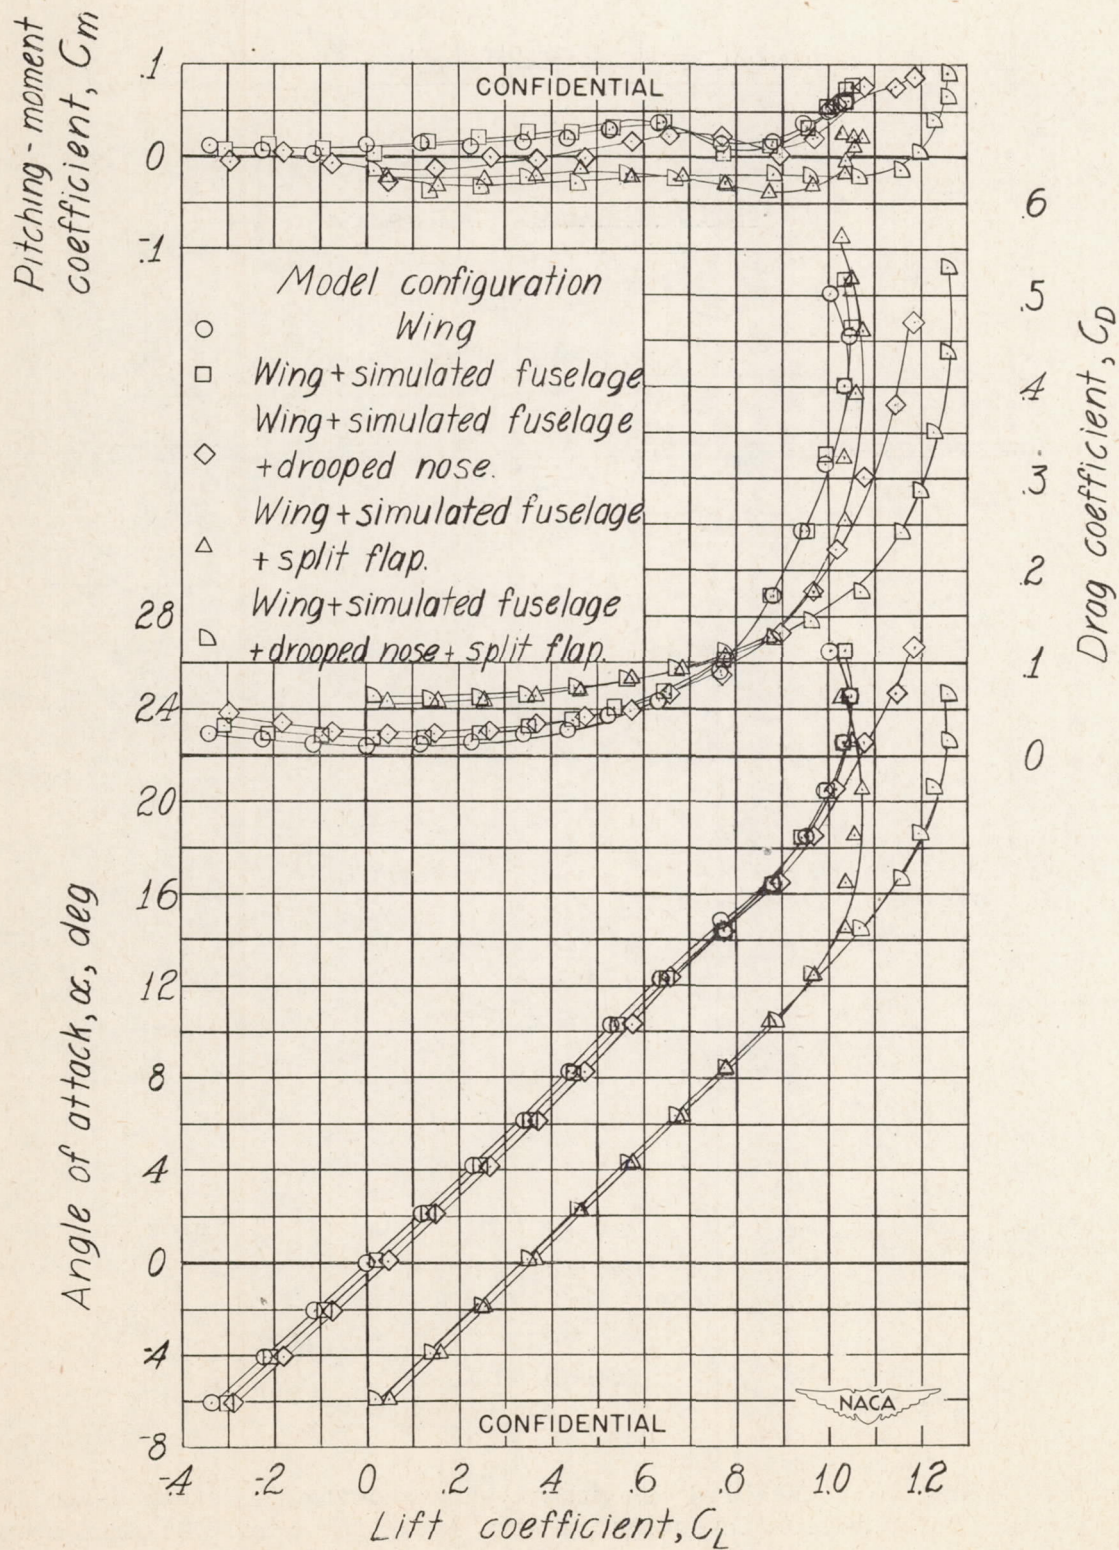 Pitching-moment
coefficient, Cm
.1
0
-.1
CONFIDENTIAL
Model configuration
Wing
Wing+simulated fuselage
Wing+simulated fuselage
+drooped nose.
Wing+simulated fuselage
+split flap.
Wing+simulated fuselage
+drooped nose+split flap.
.6
.5
.4
.3
.2
.1
0
Drag coefficient, CD
28
24
20
16
12
8
4
0
-4
-8
Angle of attack, α, deg
NACA
CONFIDENTIAL
-.4 -.2 0 .2 .4 .6 .8 1.0 1.2
Lift coefficient, CL